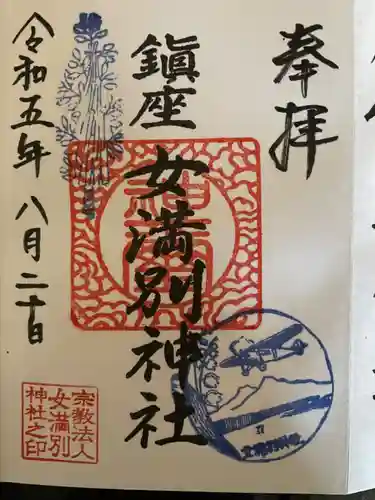 奉拝
鎮座
女満別神社
令和五年八月二十日
宗教法人
女満別
神社之印